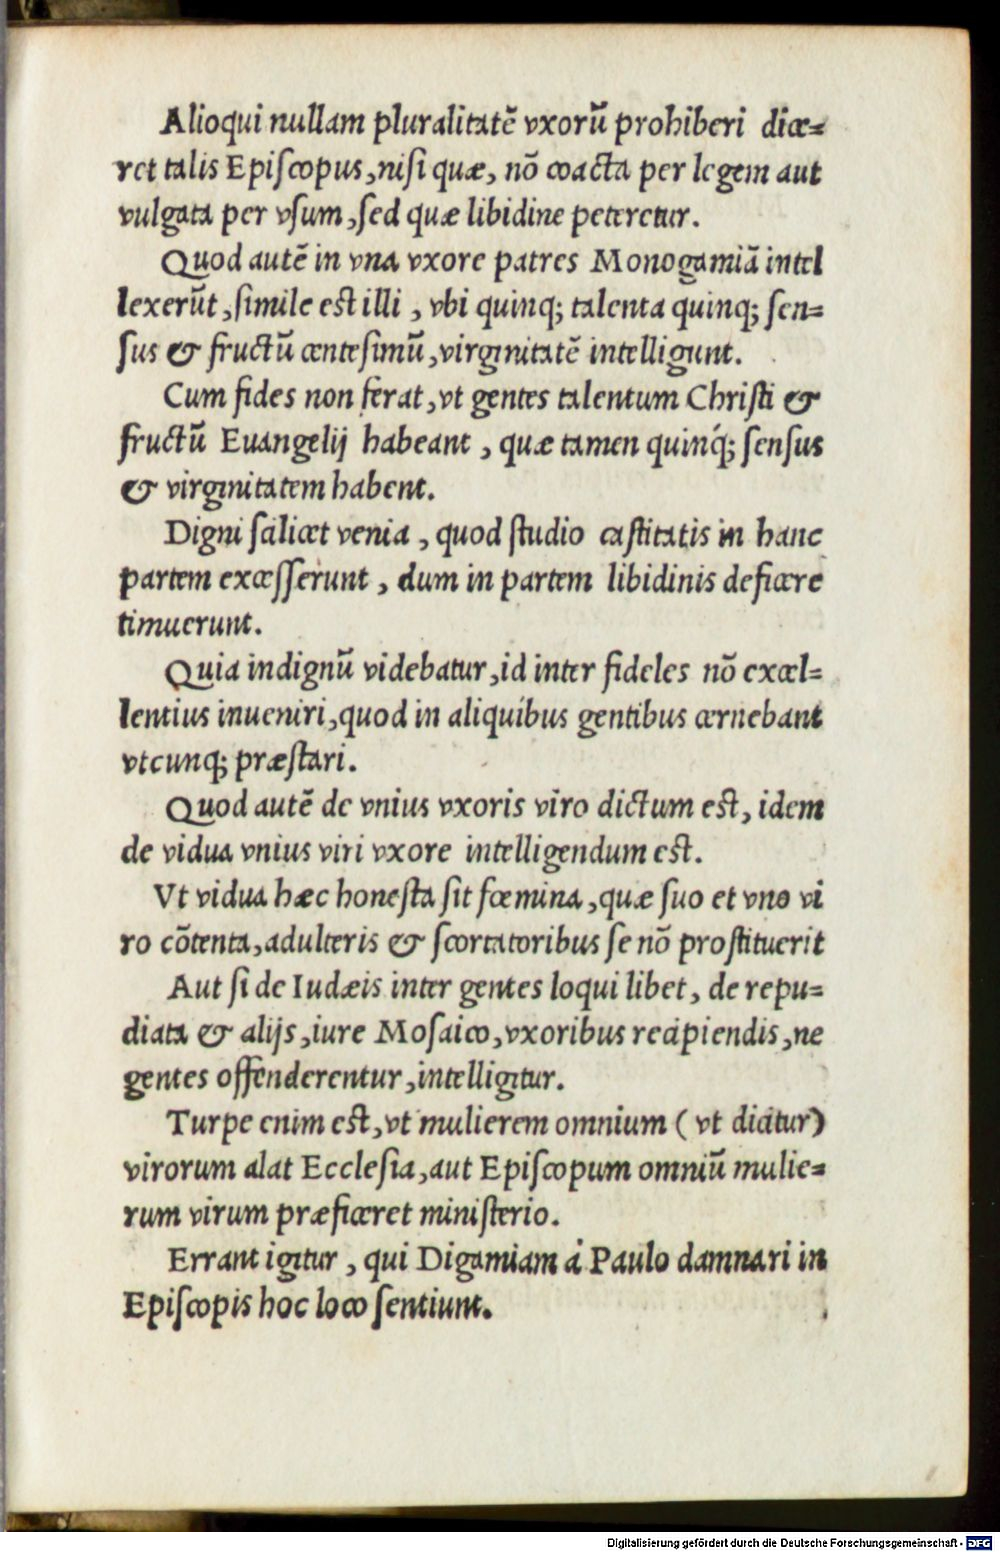 Alioqui nullam pluralitatē vxorū prohiberi dice=
ret talis Epiſcopus, niſi quæ, nō coacta per legem aut
vulgata per vſum, ſed quæ libidine peteretur.
Quod autē in vna vxore patres Monogamiā intel
lexerūt, ſimile est illi, vbi quinq; talenta quinq; ſen=
ſus & fructū centeſimū, virginitatē intelligunt.
Cum fides non ferat, vt gentes talentum Chriſti &
fructū Euangelij habeant, quæ tamen quinq́; ſenſus
& virginitatem habent.
Digni ſcilicet venia, quod ſtudio caſtitatis in hanc
partem exceſſerunt, dum in partem libidinis deficere
timuerunt.
Quia indignū videbatur, id inter fideles nō excel=
lentius inueniri, quod in aliquibus gentibus cernebant
vtcunq; præſtari.
Quod autē de vnius vxoris viro dictum est, idem
de vidua vnius viri vxore intelligendum est.
Vt vidua hæc honeſta ſit fœmina, quæ ſuo et vno vi
ro cōtenta, adulteris & ſcortatoribus ſe nō proſtituerit
Aut ſi de Iudæis inter gentes loqui libet, de repu=
diata & alijs, iure Moſaico, vxoribus recipiendis, ne
gentes offenderentur, intelligitur.
Turpe enim est, vt mulierem omnium (vt dicitur)
virorum alat Eccleſia, aut Epiſcopum omniū mulie=
rum virum præficeret miniſterio.
Errant igitur, qui Digamiam à Paulo damnari in
Epiſcopis hoc loco ſentiunt.
Digitalisierung gefördert durch die Deutsche Forschungsgemeinschaft - DFG